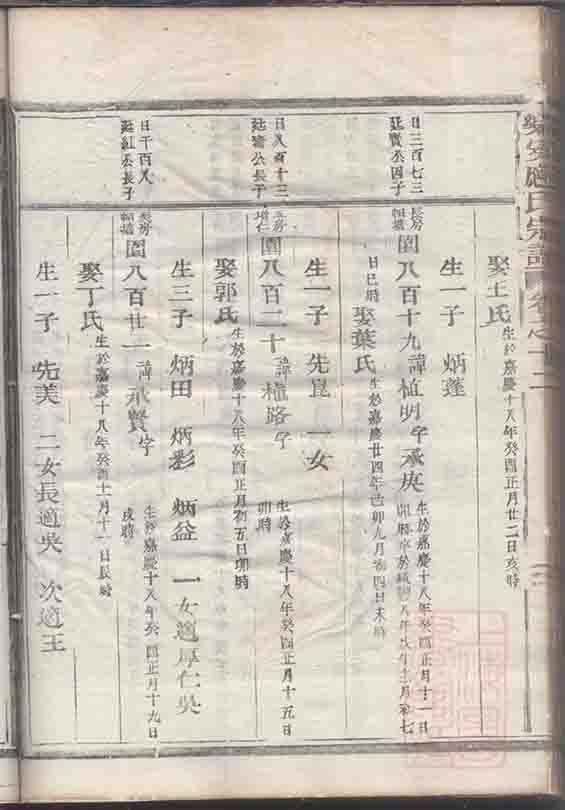 應氏宗譜 卷之十二
娶王氏 生於嘉慶十八年癸酉正月廿二日亥時
生一子 炳蓬
日三百七三
廷賢公因子
長房
園八百十九 諱植明 字承庚 生於嘉慶十八年癸酉正月十一日
卯時卒於咸豐八年戊午十月初七
日巳時 娶葉氏 生於嘉慶廿四年己卯九月初四日未時
生一子 先崑 一女
日八百十三
廷 公長子
房
增仁
園八百二十 諱植路 字 生於嘉慶十八年癸酉正月十五日
卯時
娶郭氏 生於嘉慶十八年癸酉正月初五日卯時
生三子 炳田 炳彩 炳益 一女適厚仁吳
日千百又
廷紅公長子
長房
園八百廿一 諱承賢 字 生於嘉慶十八年癸酉正月十九日
戌時
娶丁氏 生於嘉慶十八年癸酉十一月十一日辰時
生一子 先美 二女長適吳 次適王